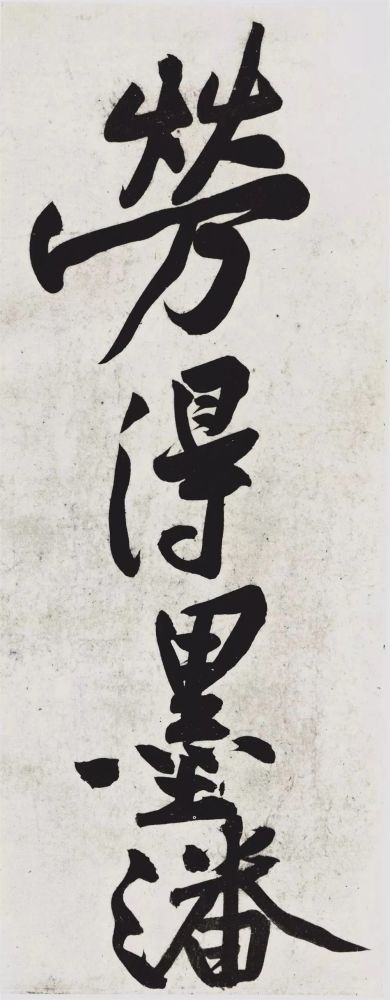 勞得墨瀋